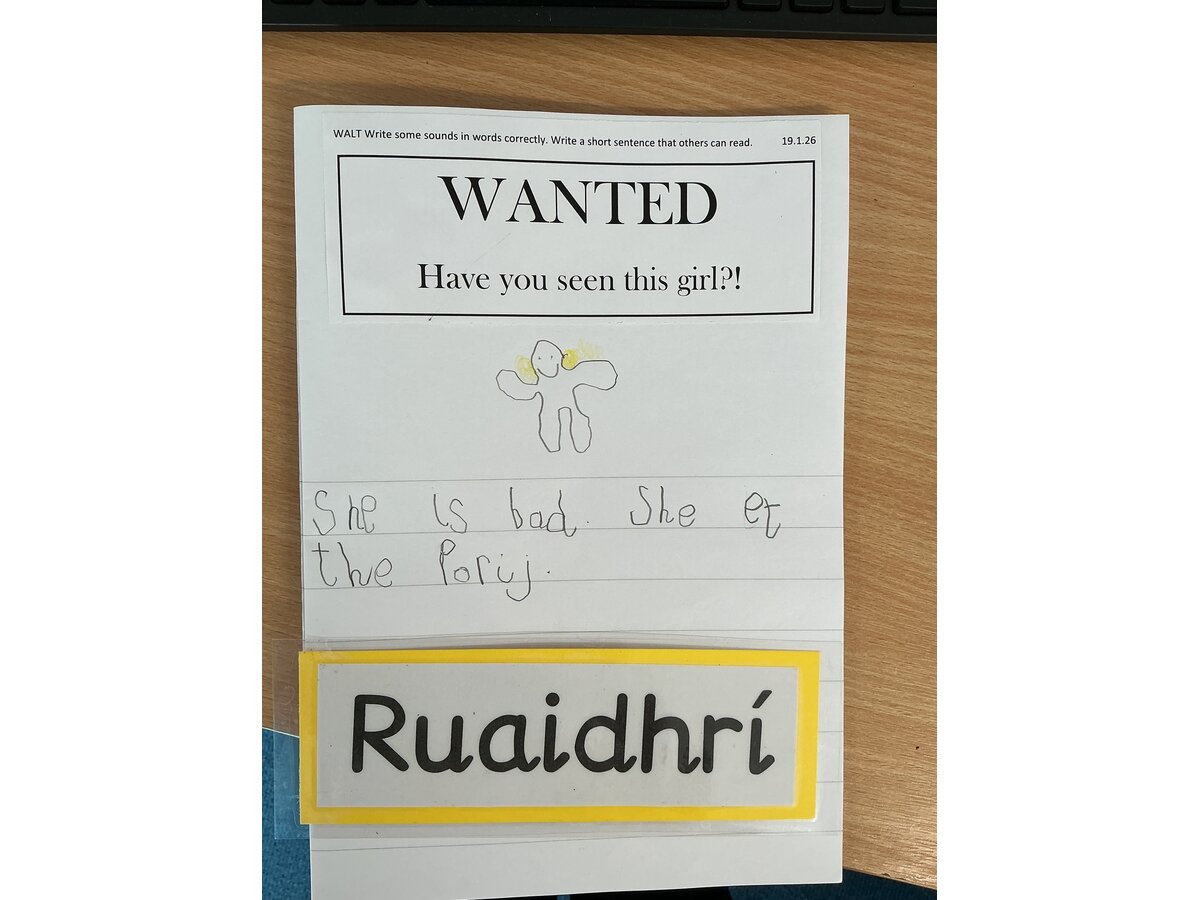 WALT Write some sounds in words correctly. Write a short sentence that others can read. 19.1.26
WANTED
Have you seen this girl?!
She is bad. She et
the Porij.
Ruaidhrí